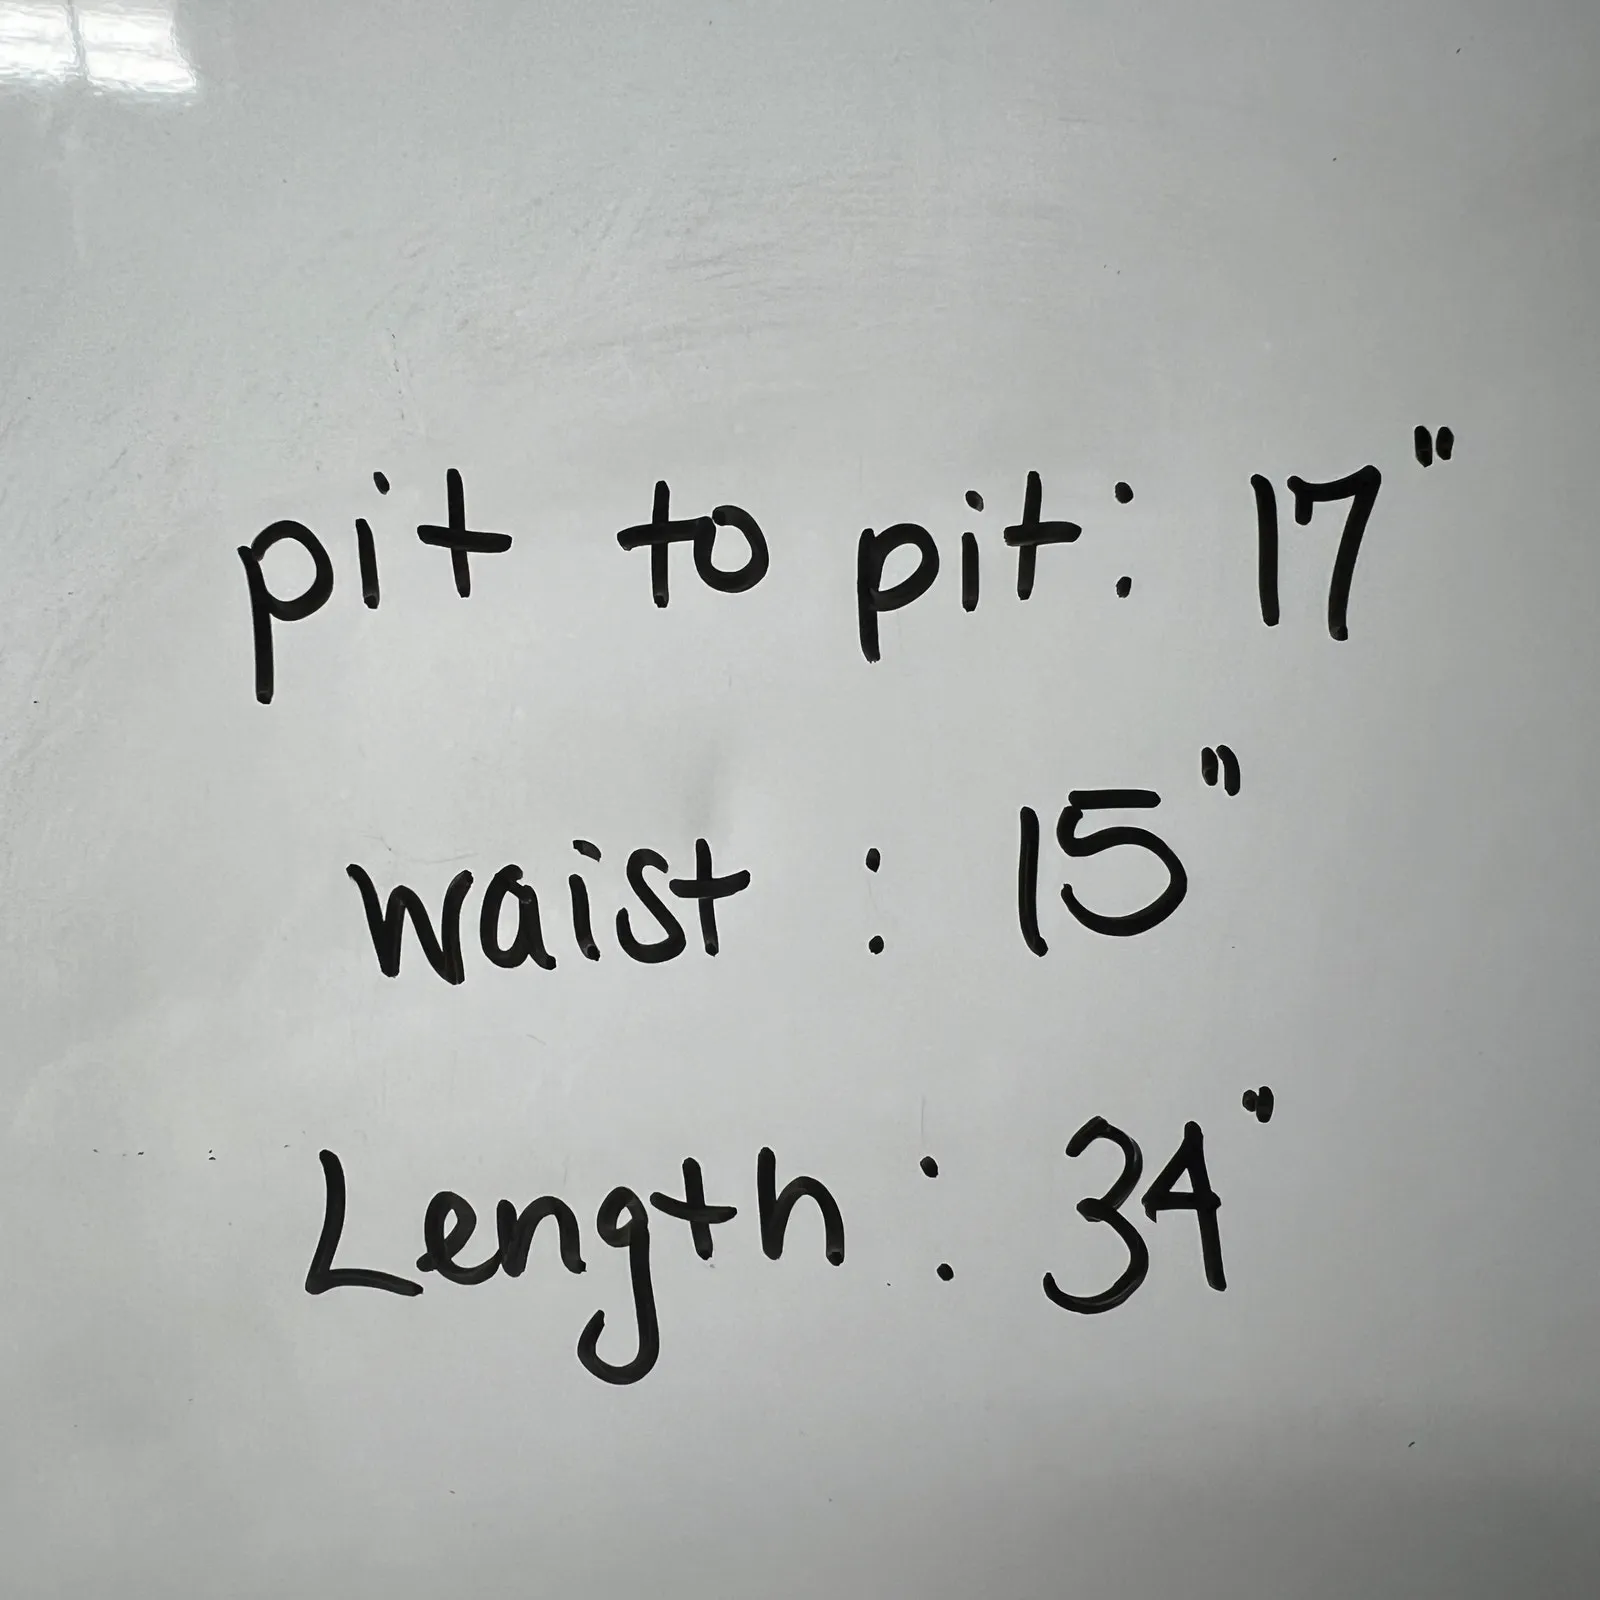 pit to pit: 17"
waist : 15"
Length : 34"